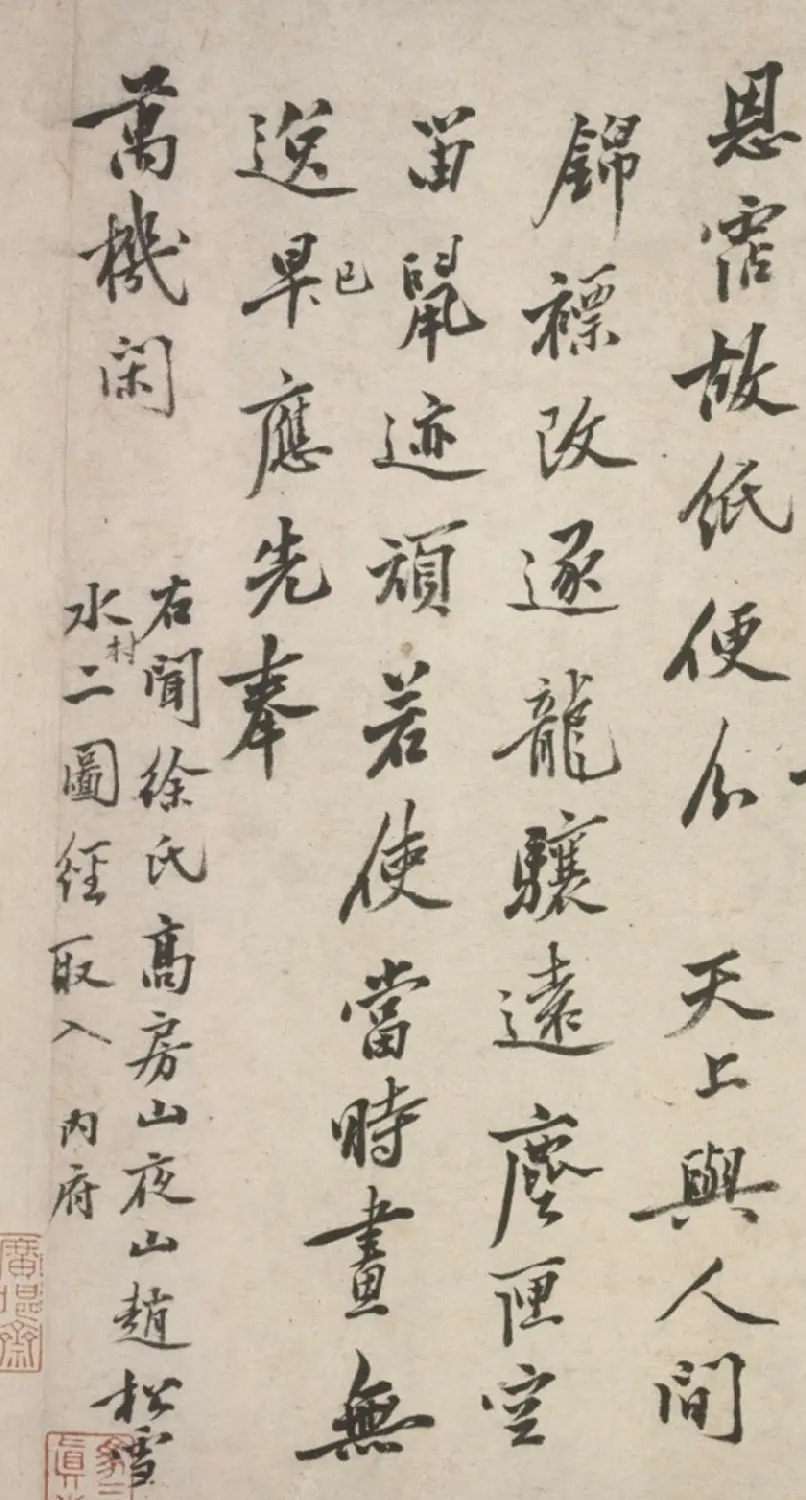 恩霑故紙便分天上與人間
錦褾改逐龍驤遠塵匣空
留鼠迹頑若使當時畫無
逸早已應先奉
萬機閑
右聞徐氏高房山夜山趙松雪
水村二圖經取入內府